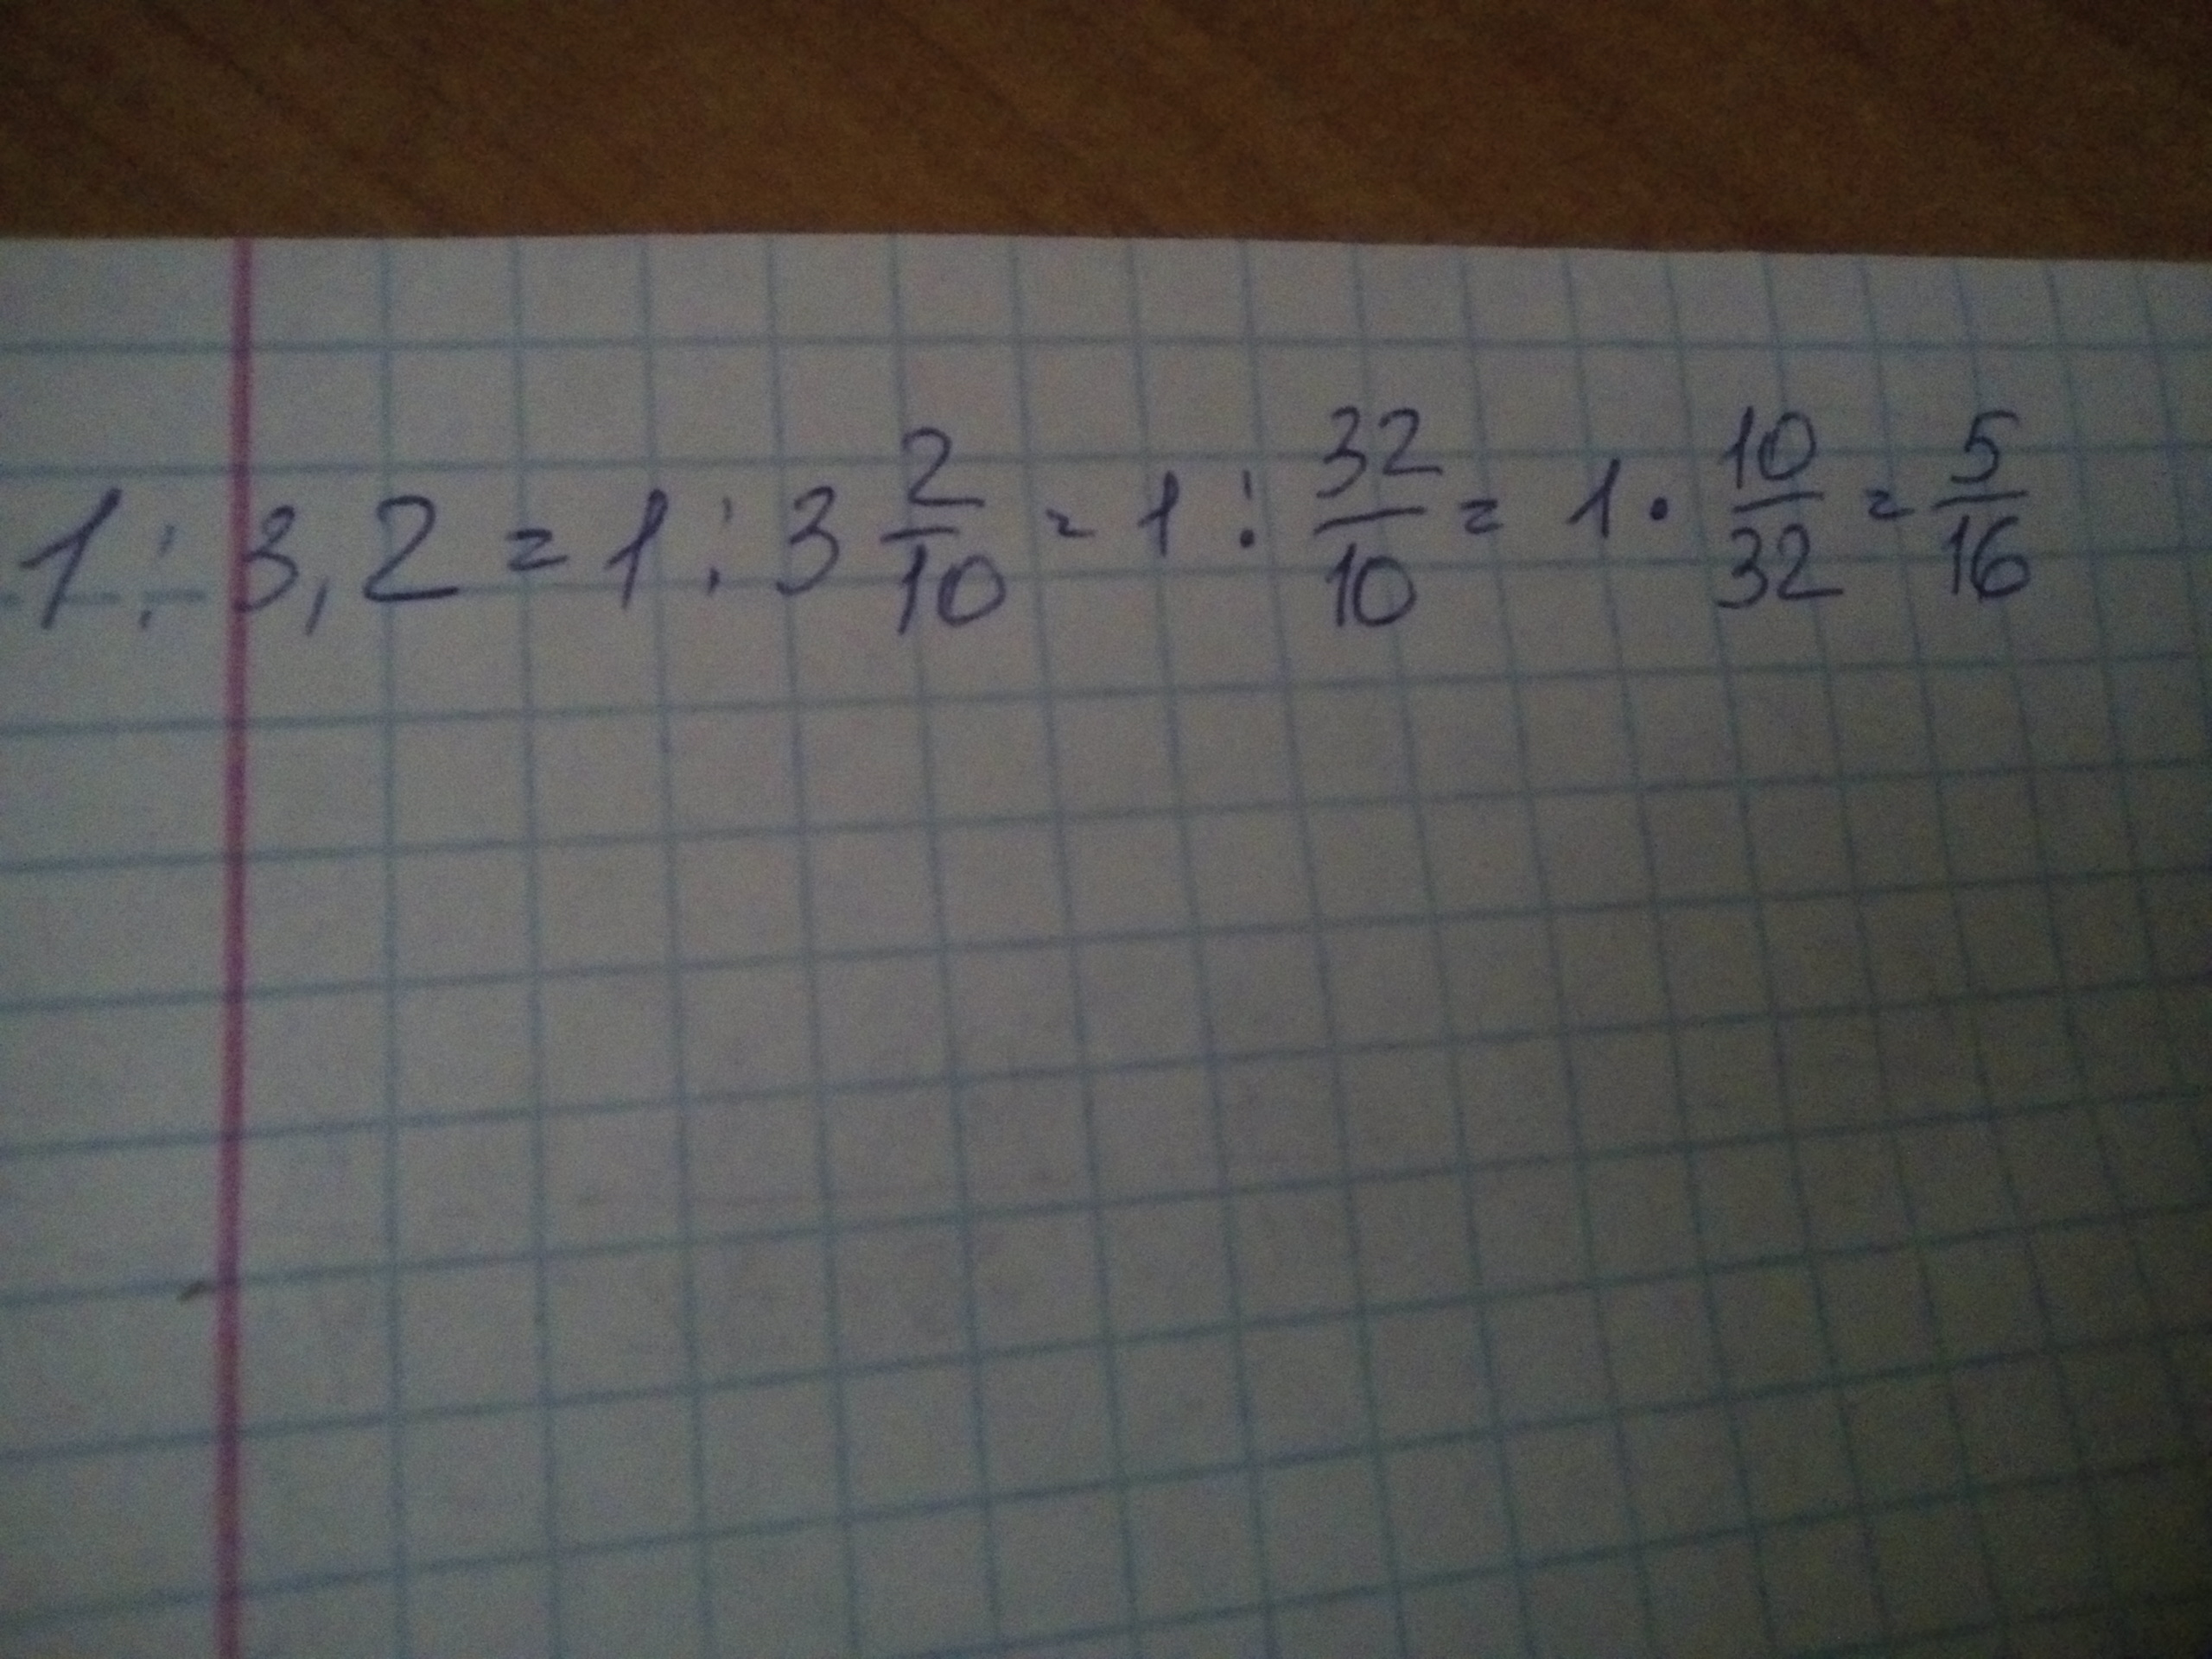 1 : 3,2 = 1 : 3 2/10 = 1 : 32/10 = 1 · 10/32 = 5/16